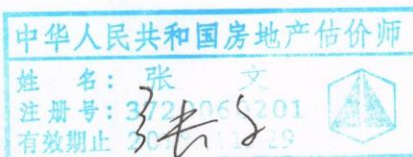 中华人民共和国房地产估价师
姓 名：张 文
注册号：3720060201
有效期止
张文